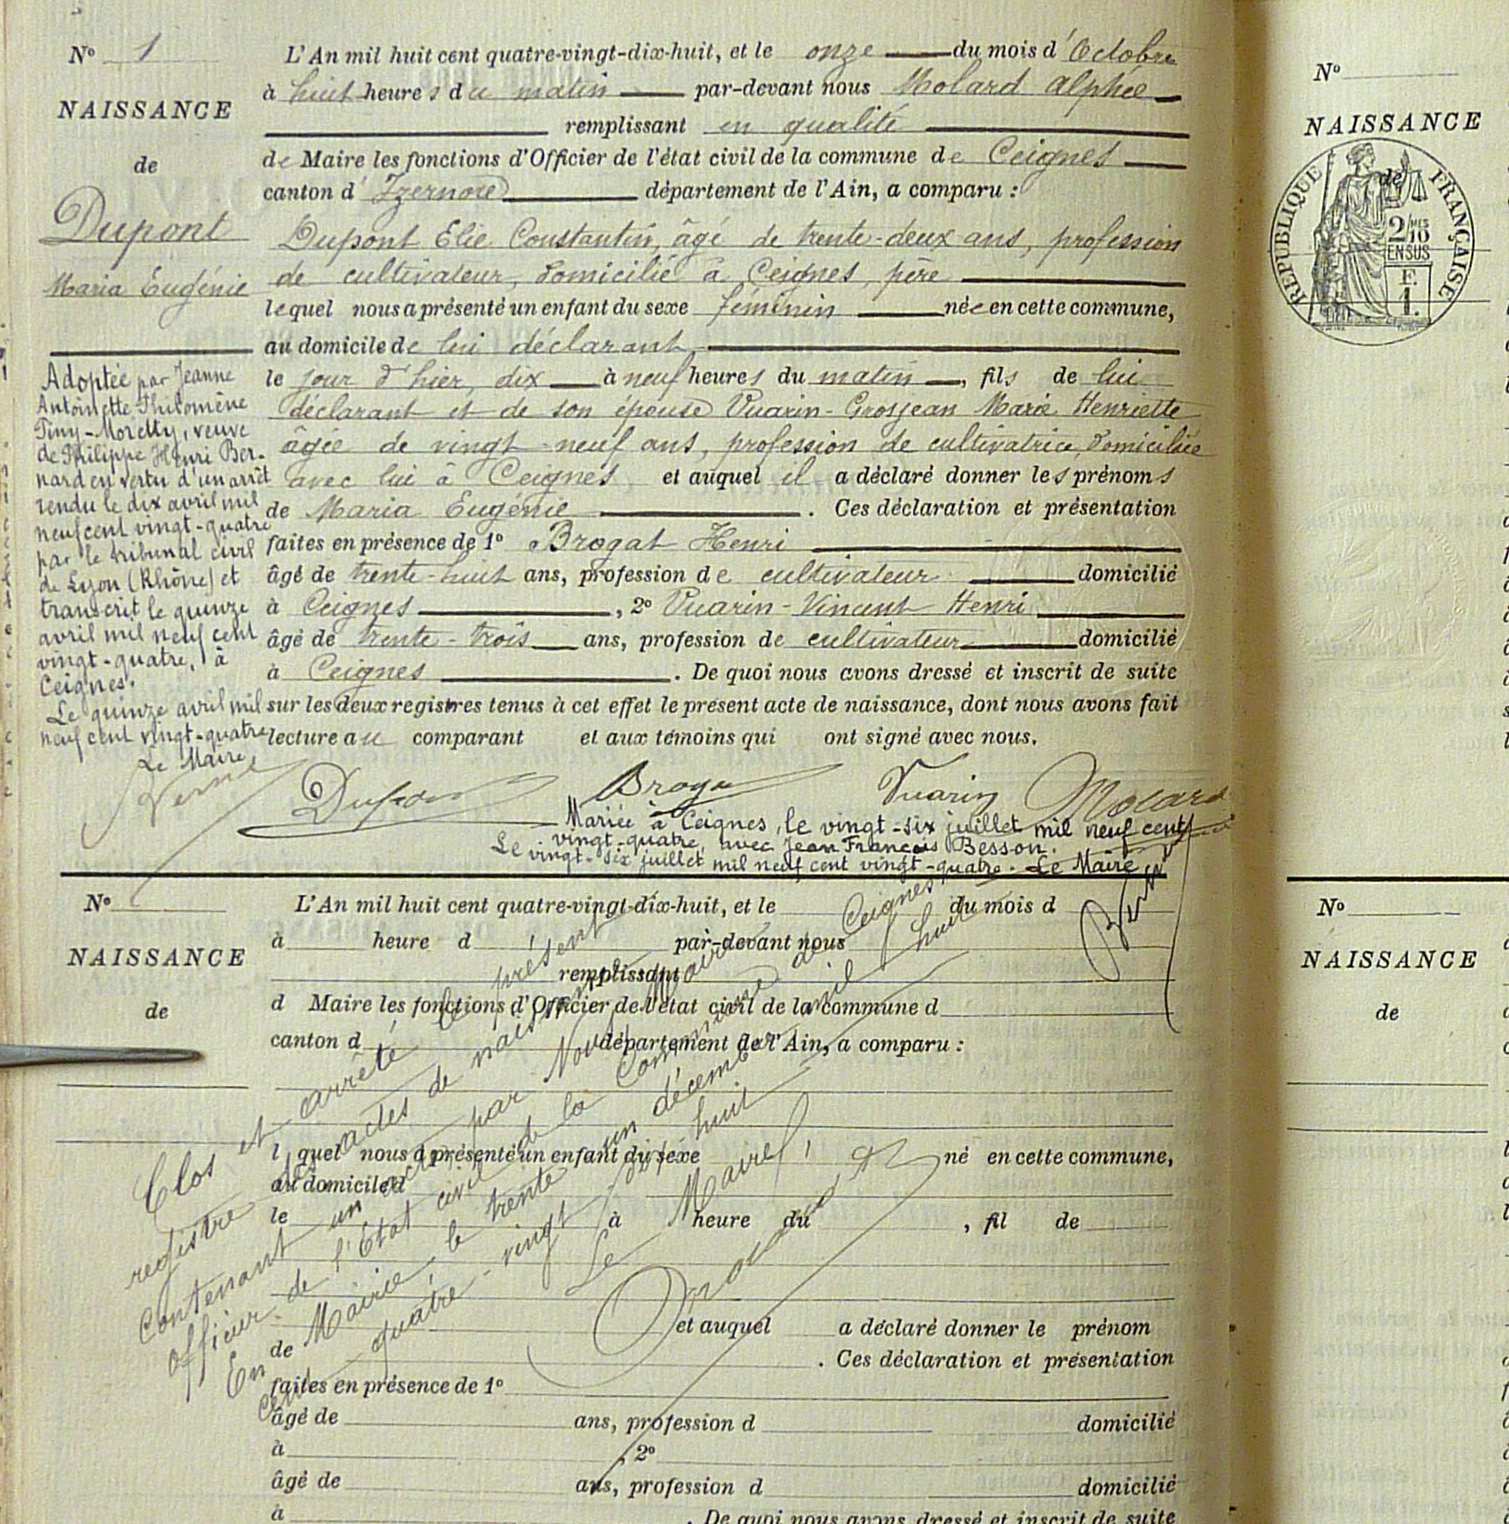 N° 1
NAISSANCE
de
Dupont
Maria Eugénie
L'An mil huit cent quatre-vingt-dix-huit, et le onze du mois d'Octobre
à huit heures du matin par-devant nous Molard Alphée
remplissant en qualité
de Maire les fonctions d'Officier de l'état civil de la commune de Ceignes
canton d'Izernore département de l'Ain, a comparu :
Dupont Elie Constantin, âgé de trente-deux ans, profession
de cultivateur, domicilié à Ceignes, père
lequel nous a présenté un enfant du sexe féminin née en cette commune,
au domicile de lui déclarant
le jour d'hier, dix à neuf heures du matin, fils de lui
déclarant et de son épouse Vuarin-Grosjean Marie Henriette
âgée de vingt-neuf ans, profession de cultivatrice, domiciliée
avec lui à Ceignes et auquel il a déclaré donner les prénoms
de Maria Eugénie. Ces déclaration et présentation
faites en présence de 1° Brogat Henri
âgé de trente-huit ans, profession de cultivateur domicilié
à Ceignes, 2° Vuarin-Vincent Henri
âgé de trente-trois ans, profession de cultivateur domicilié
à Ceignes. De quoi nous avons dressé et inscrit de suite
sur les deux registres tenus à cet effet le présent acte de naissance, dont nous avons fait
lecture au comparant et aux témoins qui ont signé avec nous.
Adoptée par Jeanne
Antoinette Philomène
Tiny-Moretty, veuve
de Philippe Henri Ber-
nard en vertu d'un arrêt
rendu le dix avril mil
neuf cent vingt-quatre
par le tribunal civil
de Lyon (Rhône) et
transcrit le quinze
avril mil neuf cent
vingt-quatre, à
Ceignes.
Le quinze avril mil
neuf cent vingt-quatre
Le Maire,
Dupont Brogat Vuarin Molard
Mariée à Ceignes, le vingt-six juillet mil neuf cent
vingt-quatre, avec Jean François Besson.
Le vingt-six juillet mil neuf cent vingt-quatre. Le Maire,
N°
NAISSANCE
de
L'An mil huit cent quatre-vingt-dix-huit, et le du mois d
à heure d par-devant nous
remplissant
d Maire les fonctions d'Officier de l'état civil de la commune d
canton d département de l'Ain, a comparu :
l quel nous a présenté un enfant du sexe né en cette commune,
au domicile d
le à heure du , fil de
et auquel a déclaré donner le prénom
de . Ces déclaration et présentation
faites en présence de 1°
âgé de ans, profession d domicilié
à , 2°
âgé de ans, profession d domicilié
à . De quoi nous avons dressé et inscrit de suite
Clos et arrêté le présent
registre des actes de naissance
contenant un acte par Nous Maire
officier de l'Etat civil de la Commune de Ceignes
En Mairie, le trente un décembre mil huit
cent quatre-vingt dix huit
Le Maire,
Molard
N°
NAISSANCE
de
RÉPUBLIQUE FRANÇAISE
2/10 MES
EN SUS
F.
1.
N°
NAISSANCE
de